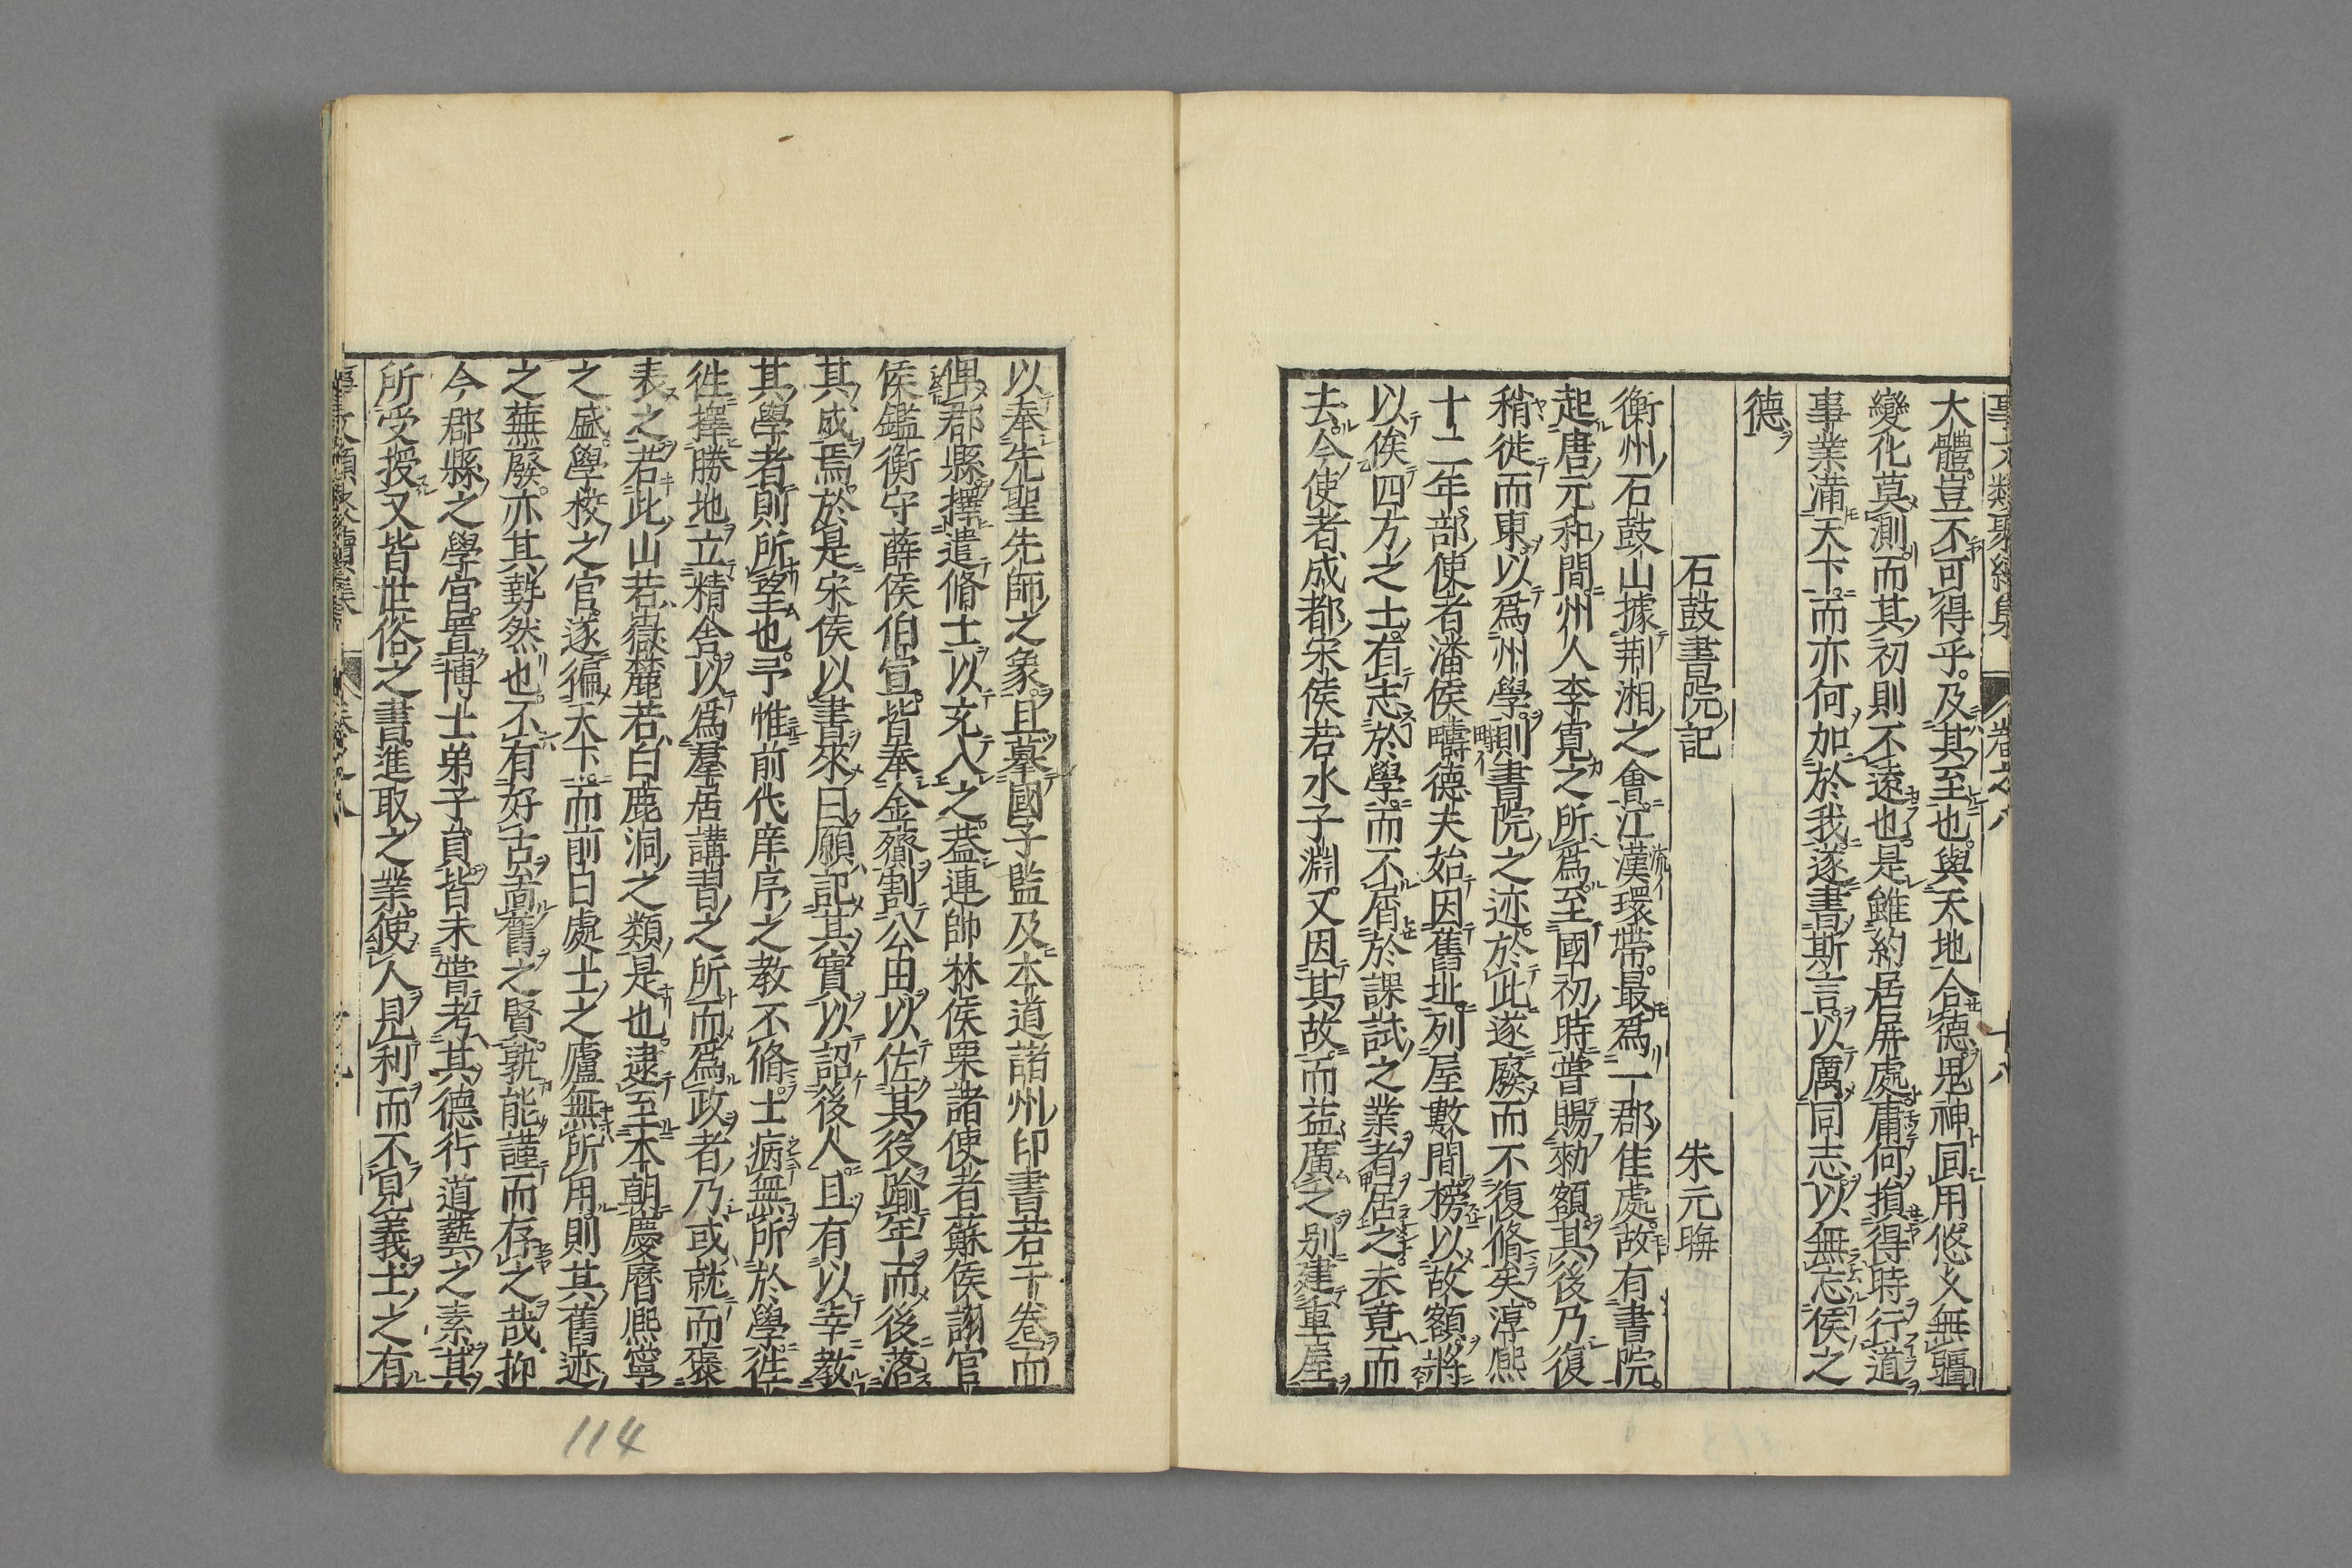 事文類聚續集 卷之八 十八
大體豈不可得乎及其至也與天地合德鬼神同用悠久無疆
變化莫測而其初則不遠也是雖約居屏處庸何損得時行道
事業滿天下而亦何加於我遂書斯言以厲同志以無忘侯之
德
石鼓書院記 朱元晦
衡州石鼓山據荊湘之會江漢環帶最爲一郡佳處故有書院
起唐元和間州人李寬之所爲至國初時嘗賜勑額其後乃復
稍徙而東以爲州學則書院之迹於此遂廢而不復脩矣淳熈
十二年部使者潘侯疇德夫始因舊址列屋數間榜以故額將
以俟四方之士有志於學而不屑於課試之業者居之未竟而
去今使者成都宋侯若水子淵又因其故而益廣之別建重屋
以奉先聖先師之象且摹國子監及本道諸州印書若干卷而
俾郡縣擇遣脩士以充入之蓋連帥林侯栗諸使者蘇侯詡官
侯鑑衡守薛侯伯宣皆奉金賫割公田以佐其役踰年而後落
其成焉於是宋侯以書來曰願記其實以詔後人且有以幸教
其學者則所望也予惟前代庠序之教不脩士病無所於學徃
徃擇勝地立精舍以爲羣居講習之所而爲政者乃或就而褒
表之若此山若嶽麓若白鹿洞之類是也逮至本朝慶曆熈寧
之盛學校之官遂徧天下而前日處士之廬無所用則其舊迹
之蕪廢亦其勢然也不有好古啚舊之賢孰能謹而存之哉抑
今郡縣之學官置博士弟子員皆未嘗考其德行道藝之素其
所受授又皆世俗之書進取之業使人見利而不見義士之有